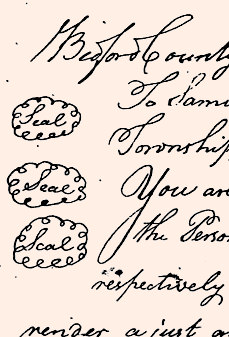 Bedford County
To Sam
Seal
Township
Seal
You are
Seal
the Person
respectively
render a just a